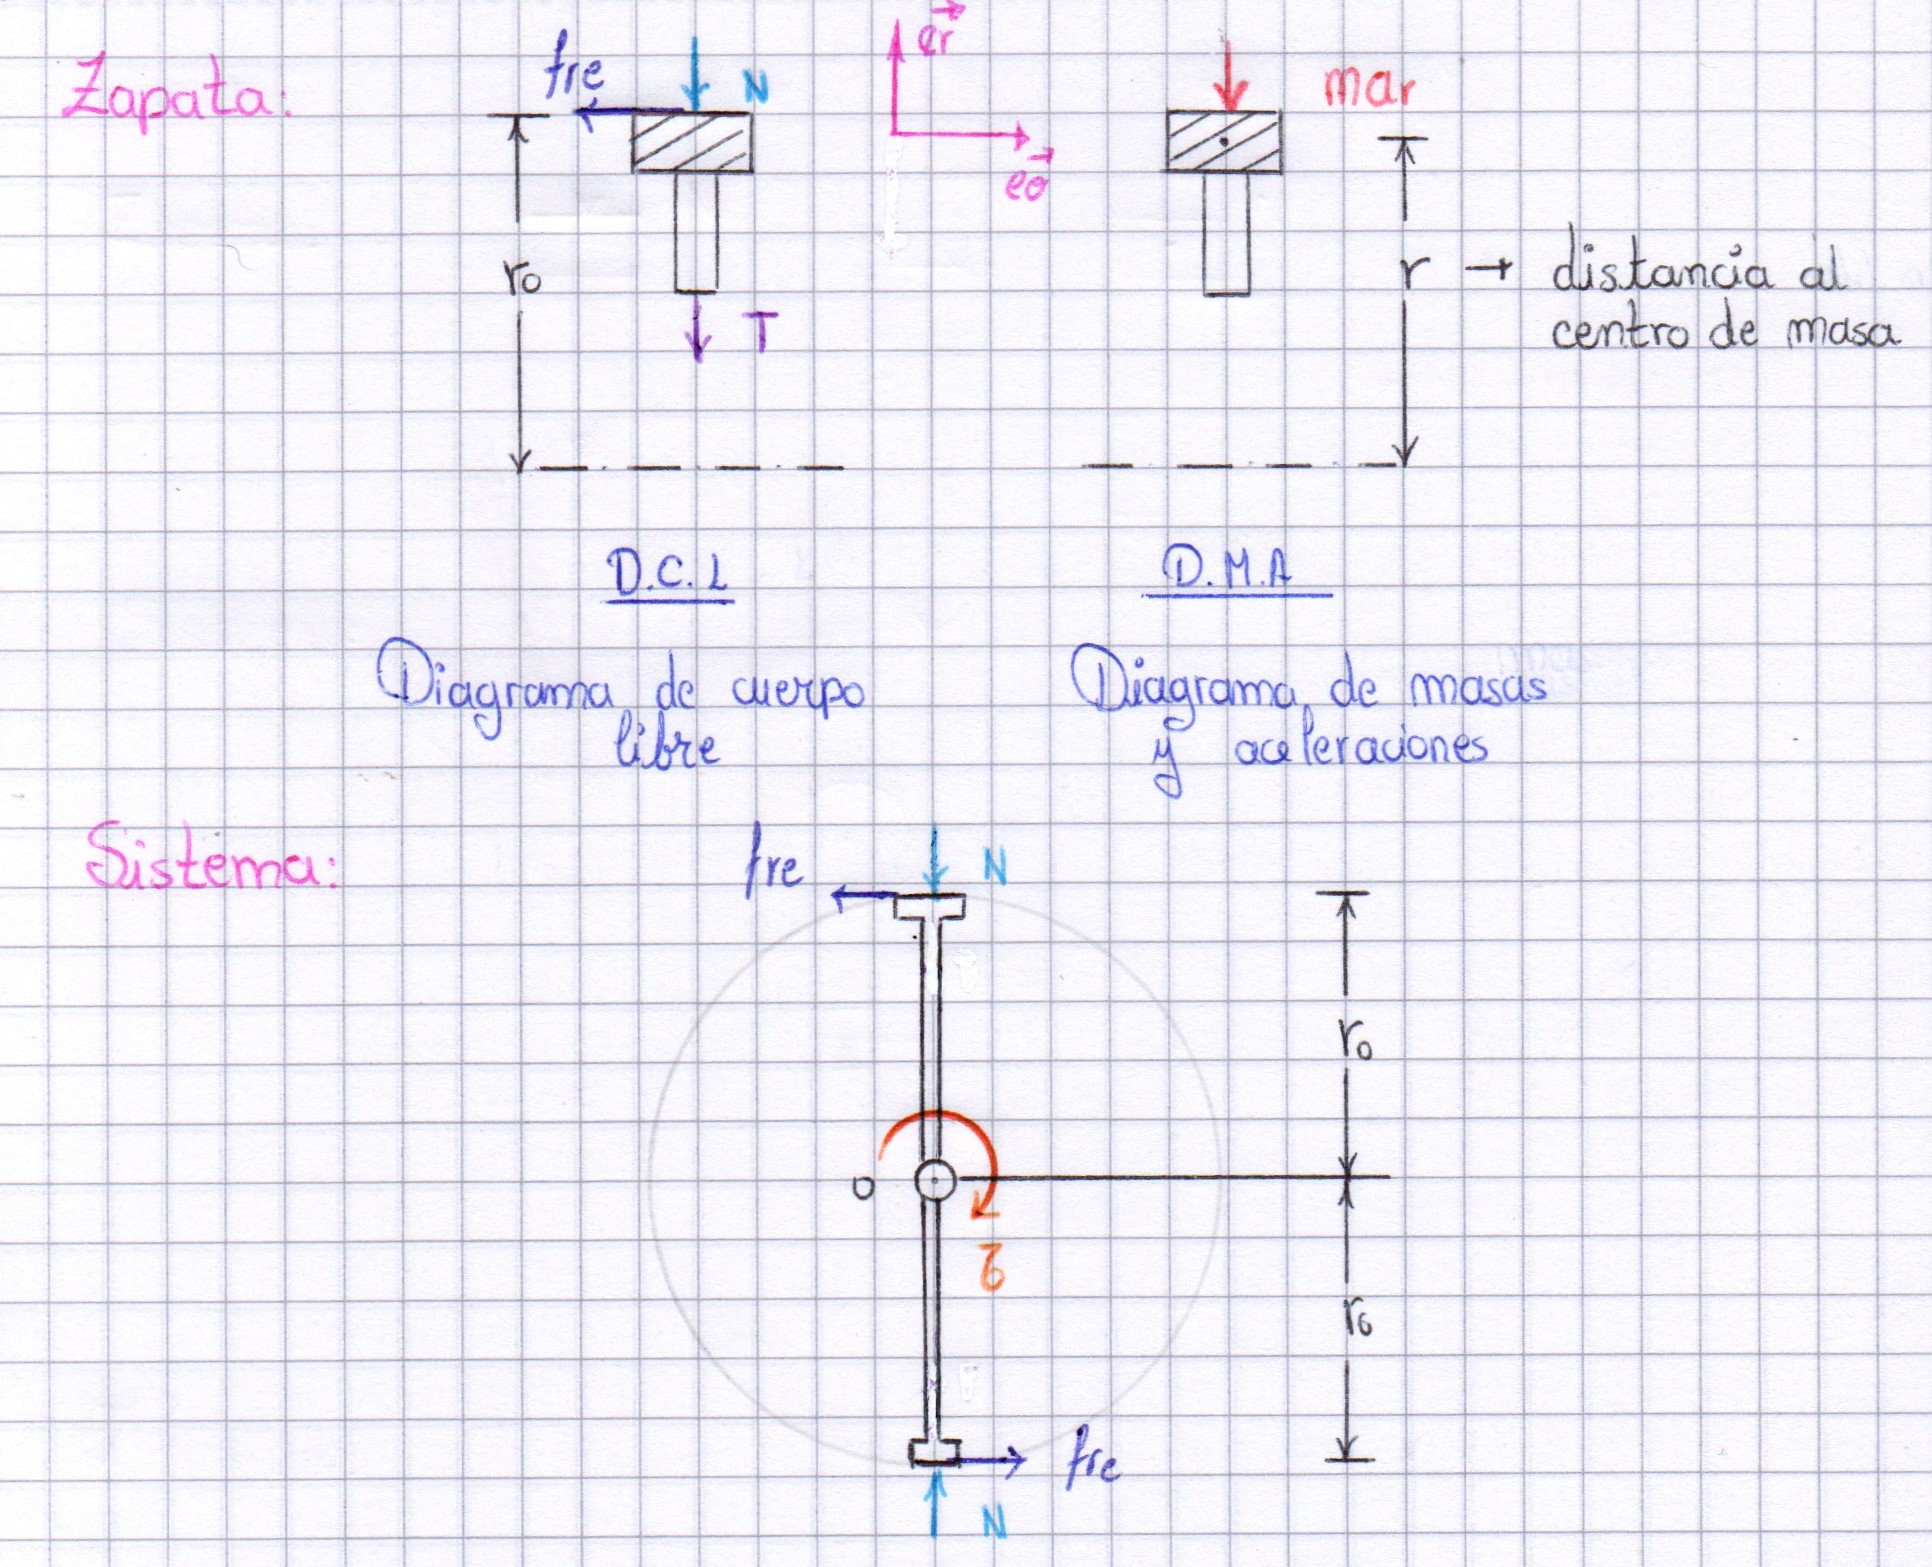 Zapata:
fre
N
er
mar
eθ
ro
T
r → distancia al
centro de masa
D.C.L
D.M.A
Diagrama de cuerpo
libre
Diagrama de masas
y aceleraciones
Sistema:
fre
N
ro
o
τ
ro
fre
N